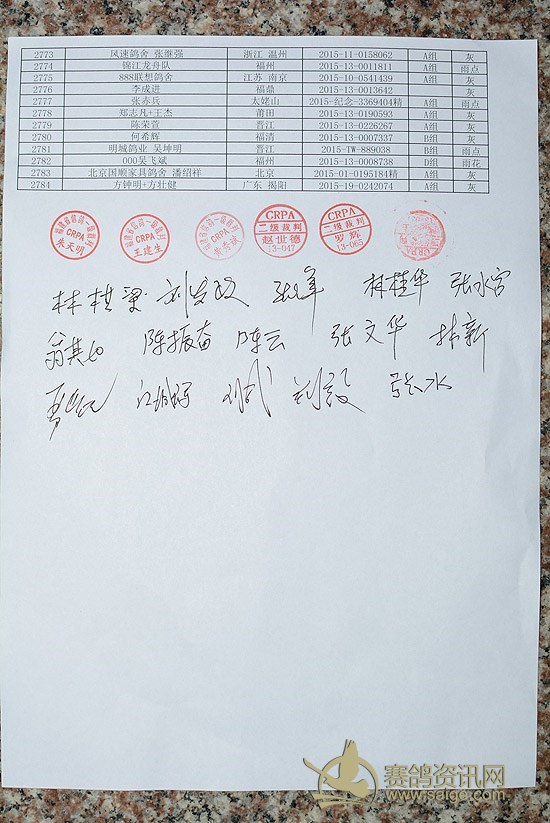 2773 风速鸽舍 张继强 浙江 温州 2015-11-0158062 A组 灰
2774 锦江龙舟队 福州 2015-13-0011811 A组 雨点
2775 888联想鸽舍 江苏 南京 2015-10-0541439 A组 灰
2776 李成进 福鼎 2015-13-0013642 灰
2777 张赤兵 太姥山 2015-纪念-3369404精 A组 雨点
2778 郑志凡+王杰 莆田 2015-13-0190593 A组 灰
2779 陈荣萱 晋江 2015-13-0226267 A组 灰
2780 何希辉 福清 2015-13-0007337 B组 灰
2781 明城鸽业 吴坤明 晋江 2015-TW-889038 B组 雨点
2782 000吴飞斌 福州 2015-13-0008738 D组 雨花
2783 北京国顺家具鸽舍 潘绍祥 北京 2015-01-0195184精 A组 灰
2784 方钟明+方壮健 广东 揭阳 2015-19-0242074 A组 灰
CRPA 朱天明
CRPA 王建生
CRPA
CRPA 二级裁判 赵世德 13-047
CRPA 二级裁判 罗辉 13-065
CRPA
林桂华 张水官
陈振奋 陈云 张文华 林新
张水
赛鸽资讯网
www.saige.com